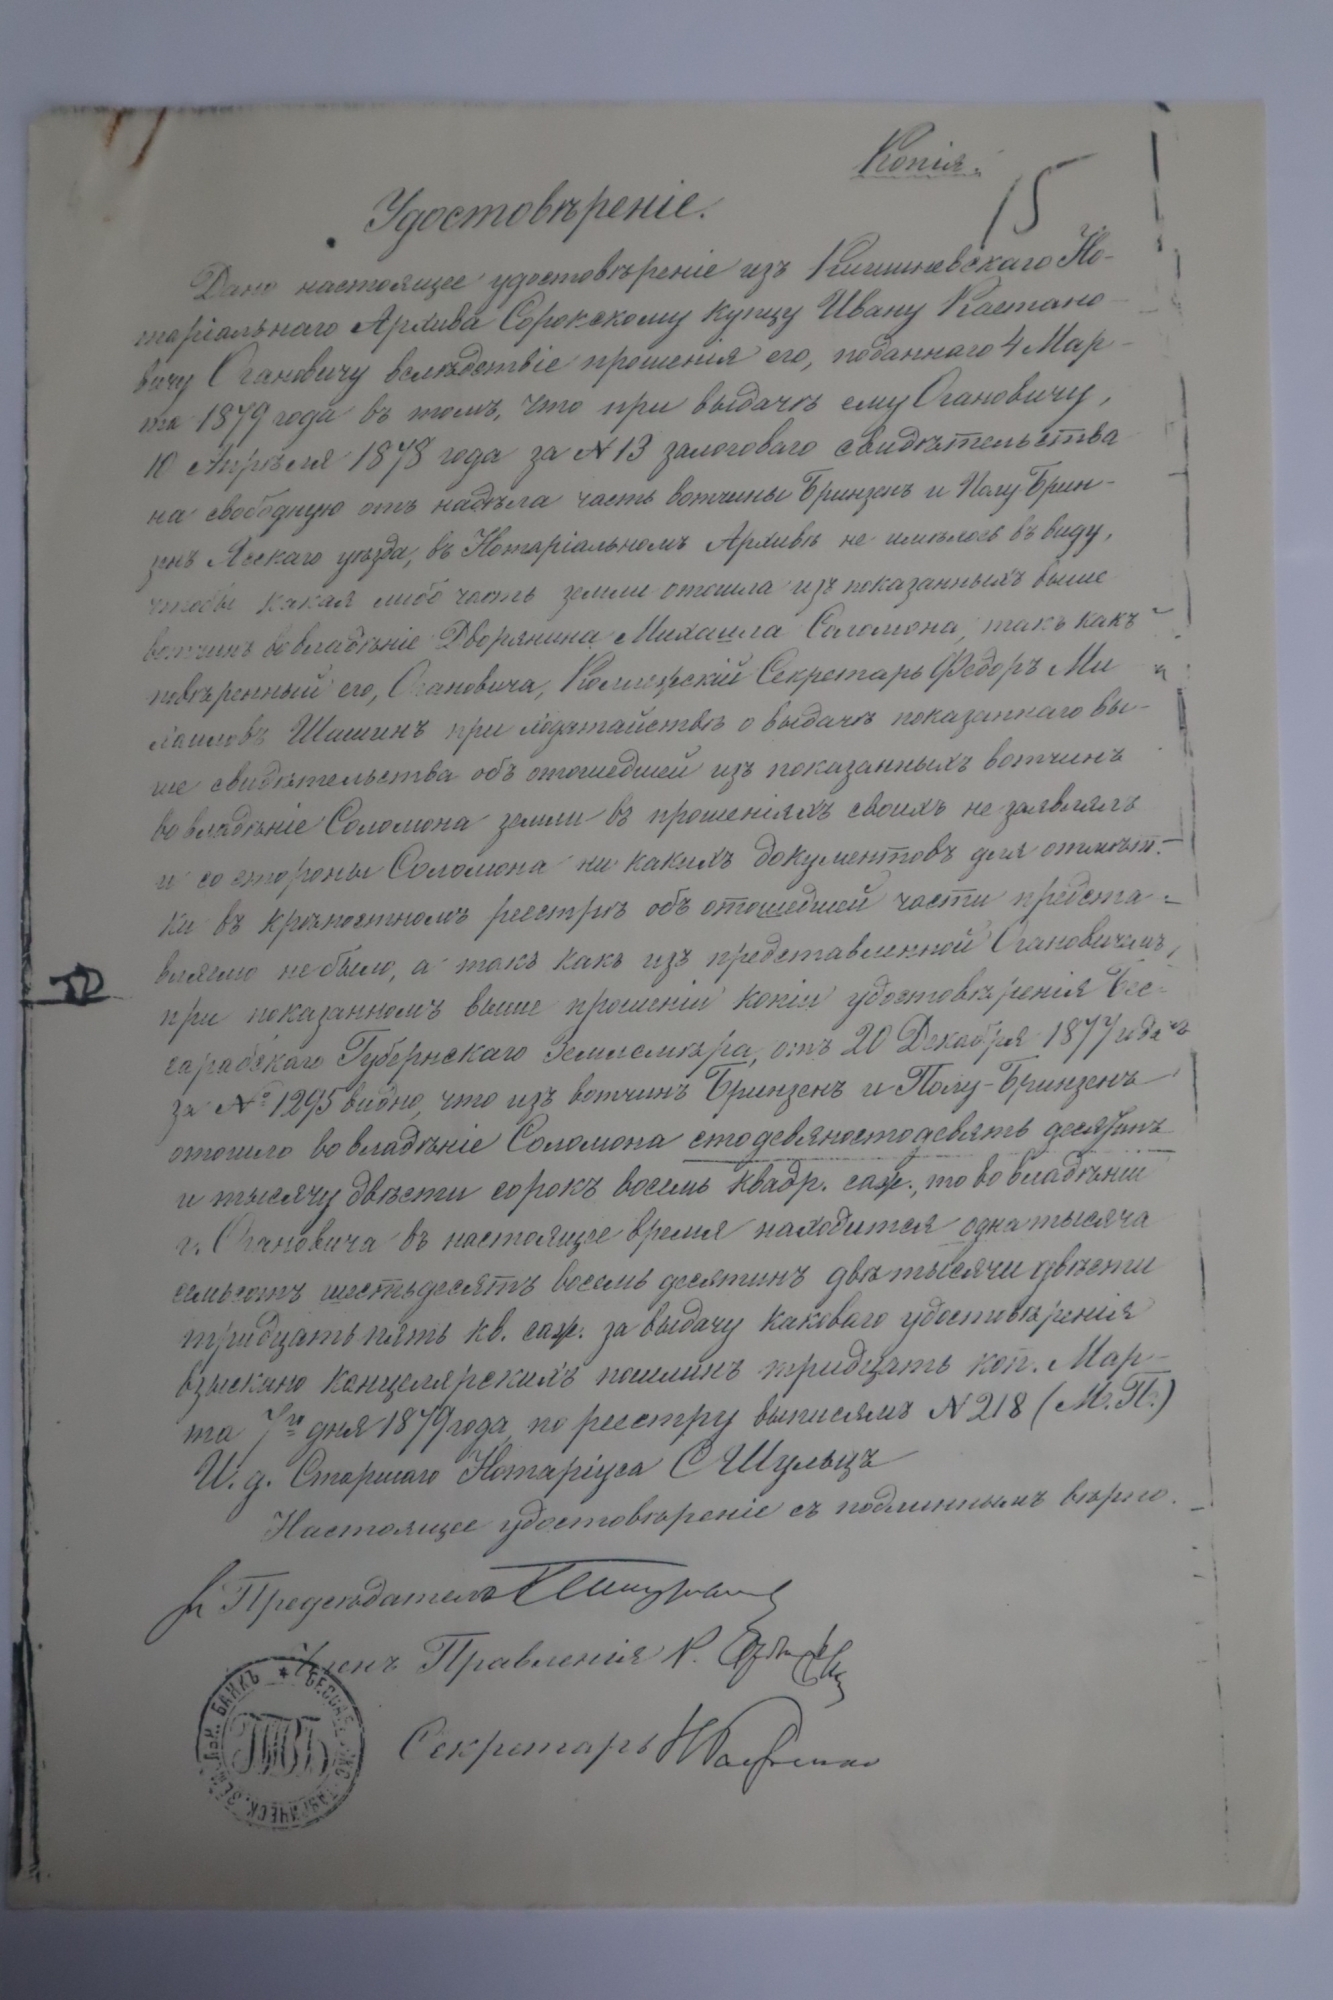 Копія.
15
Удостовѣреніе.
Дано настоящее удостовѣреніе изъ Кишиневскаго Но-
таріальнаго Архива Сорокскому купцу Ивану Кастано-
вичу Огановичу вслѣдствіе прошенія его, поданнаго 4 Мар-
та 1879 года въ томъ, что при выдачѣ ему Огановичу,
10 Апрѣля 1878 года за № 13 залоговаго свидѣтельства
на свободную отъ надѣла часть вотчины Бринзенъ и Полу Брин-
зенъ Ясскаго уѣзда, въ Нотаріальномъ Архивѣ не имѣлось въ виду,
чтобы какая либо часть земли отошла изъ показанныхъ выше
вотчинъ во владѣніе Дворянина Михаила Соломона, такъ какъ
повѣренный его, Огановича, Коллежскій Секретарь Федоръ Ми
хаиловъ Шишинъ при ходатайствѣ о выдачѣ показаннаго вы-
ше свидѣтельства объ отошедшей изъ показанныхъ вотчинъ
во владѣніе Соломона земли въ прошеніяхъ своихъ не заявлялъ
и со стороны Соломона ни какихъ документовъ для отмѣт-
ки въ крѣпостномъ реестрѣ объ отошедшей части предста-
вляемо не было, а такъ какъ изъ представленной Огановичемъ,
при показанномъ выше прошеніи копіи удостовѣренія Бес-
сарабскаго Губернскаго Землемѣра, отъ 20 Декабря 1877 года
за № 1295 видно, что изъ вотчинъ Бринзенъ и Полу-Бринзенъ
отошло во владѣніе Соломона сто девяносто девять десятинъ
и тысячу двѣсти сорокъ восемь квадр. саж., то во владѣніи
г. Огановича въ настоящее время находится одна тысяча
семьсотъ шестьдесятъ восемь десятинъ двѣ тысячи двѣсти
тридцать пять кв. саж. за выдачу каковаго удостовѣренія
взыскано канцелярскихъ пошлинъ тридцать коп. Мар-
та 7го дня 1879 года, по реестру выписямъ № 218 (М. П.)
И. д. Старшаго Нотаріуса С Шульцъ
Настоящее удостовѣреніе съ подлиннымъ вѣрно.
Предсѣдатель
Членъ Правленія К.
Секретарь
БЕССАРАБСКО-ТАВРИЧЕСК. ЗЕМЕЛЬН. БАНКЪ